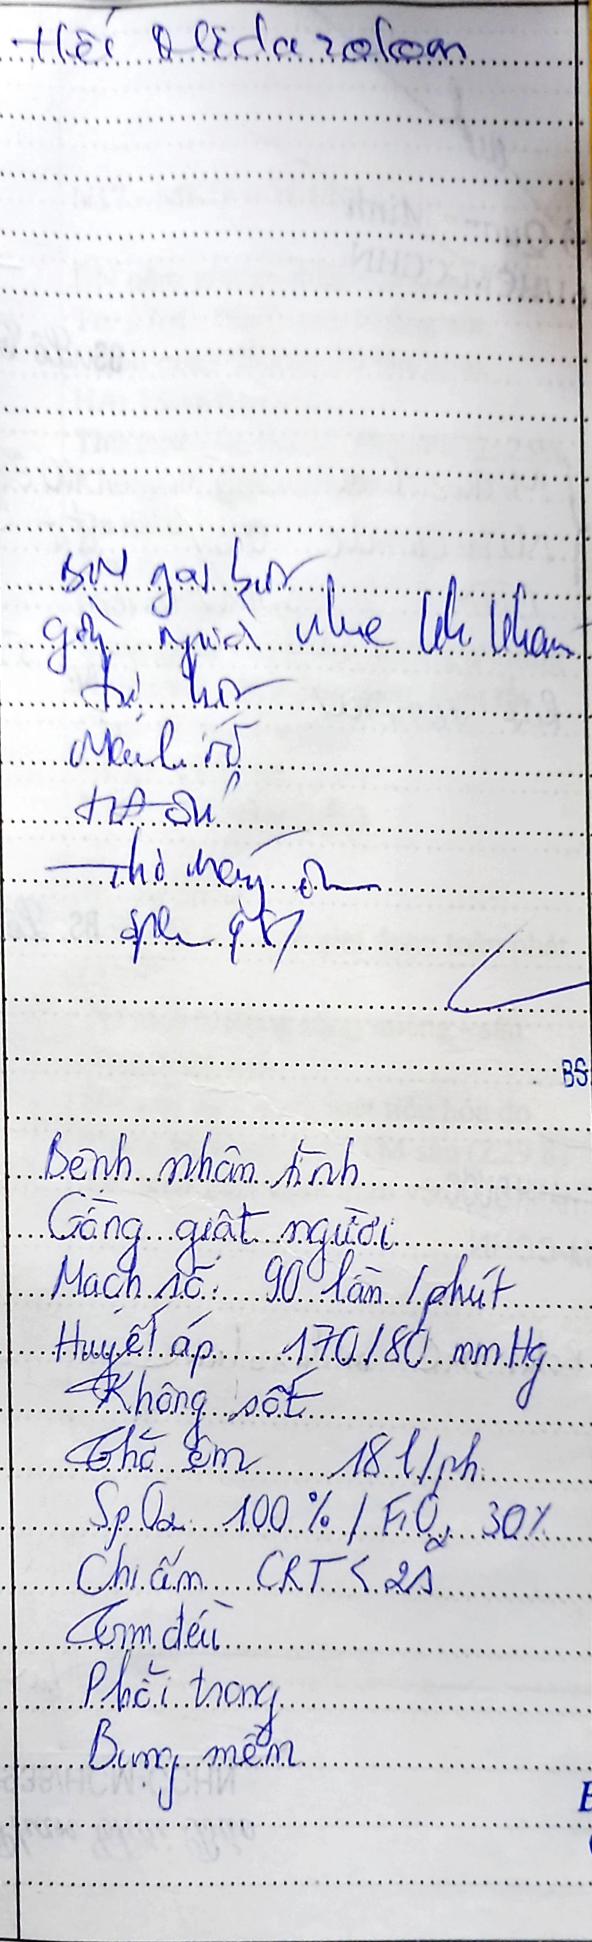 Hết Midazolam
BN gọi hỏi
giật người nhẹ khi khám
Mạch rõ
HA ổn
Thở máy êm
BS
Bệnh nhân tỉnh
Gồng giật người
Mạch số: 90 lần/phút
Huyết áp 170/80 mmHg
Không sốt
Thở êm 18 l/ph
SpO2 100% / FiO2 30%
Chi ấm CRT < 2s
Tim đều
Phổi trong
Bụng mềm